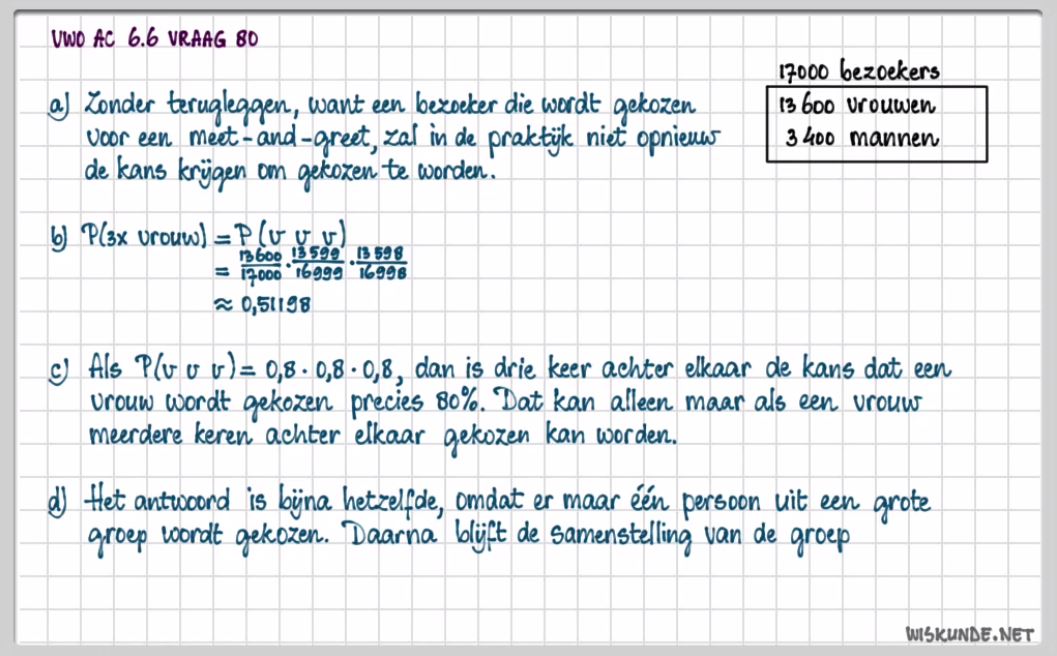 VWO AC 6.6 VRAAG 80
17000 bezoekers
13600 vrouwen
3400 mannen
a) Zonder terugleggen, want een bezoeker die wordt gekozen
voor een meet-and-greet, zal in de praktijk niet opnieuw
de kans krijgen om gekozen te worden.
b) P(3x vrouw) = P(v v v)
= 13600/17000 · 13599/16999 · 13598/16998
≈ 0,51198
c) Als P(v v v) = 0,8 · 0,8 · 0,8, dan is drie keer achter elkaar de kans dat een
vrouw wordt gekozen precies 80%. Dat kan alleen maar als een vrouw
meerdere keren achter elkaar gekozen kan worden.
d) Het antwoord is bijna hetzelfde, omdat er maar één persoon uit een grote
groep wordt gekozen. Daarna blijft de samenstelling van de groep
WISKUNDE.NET